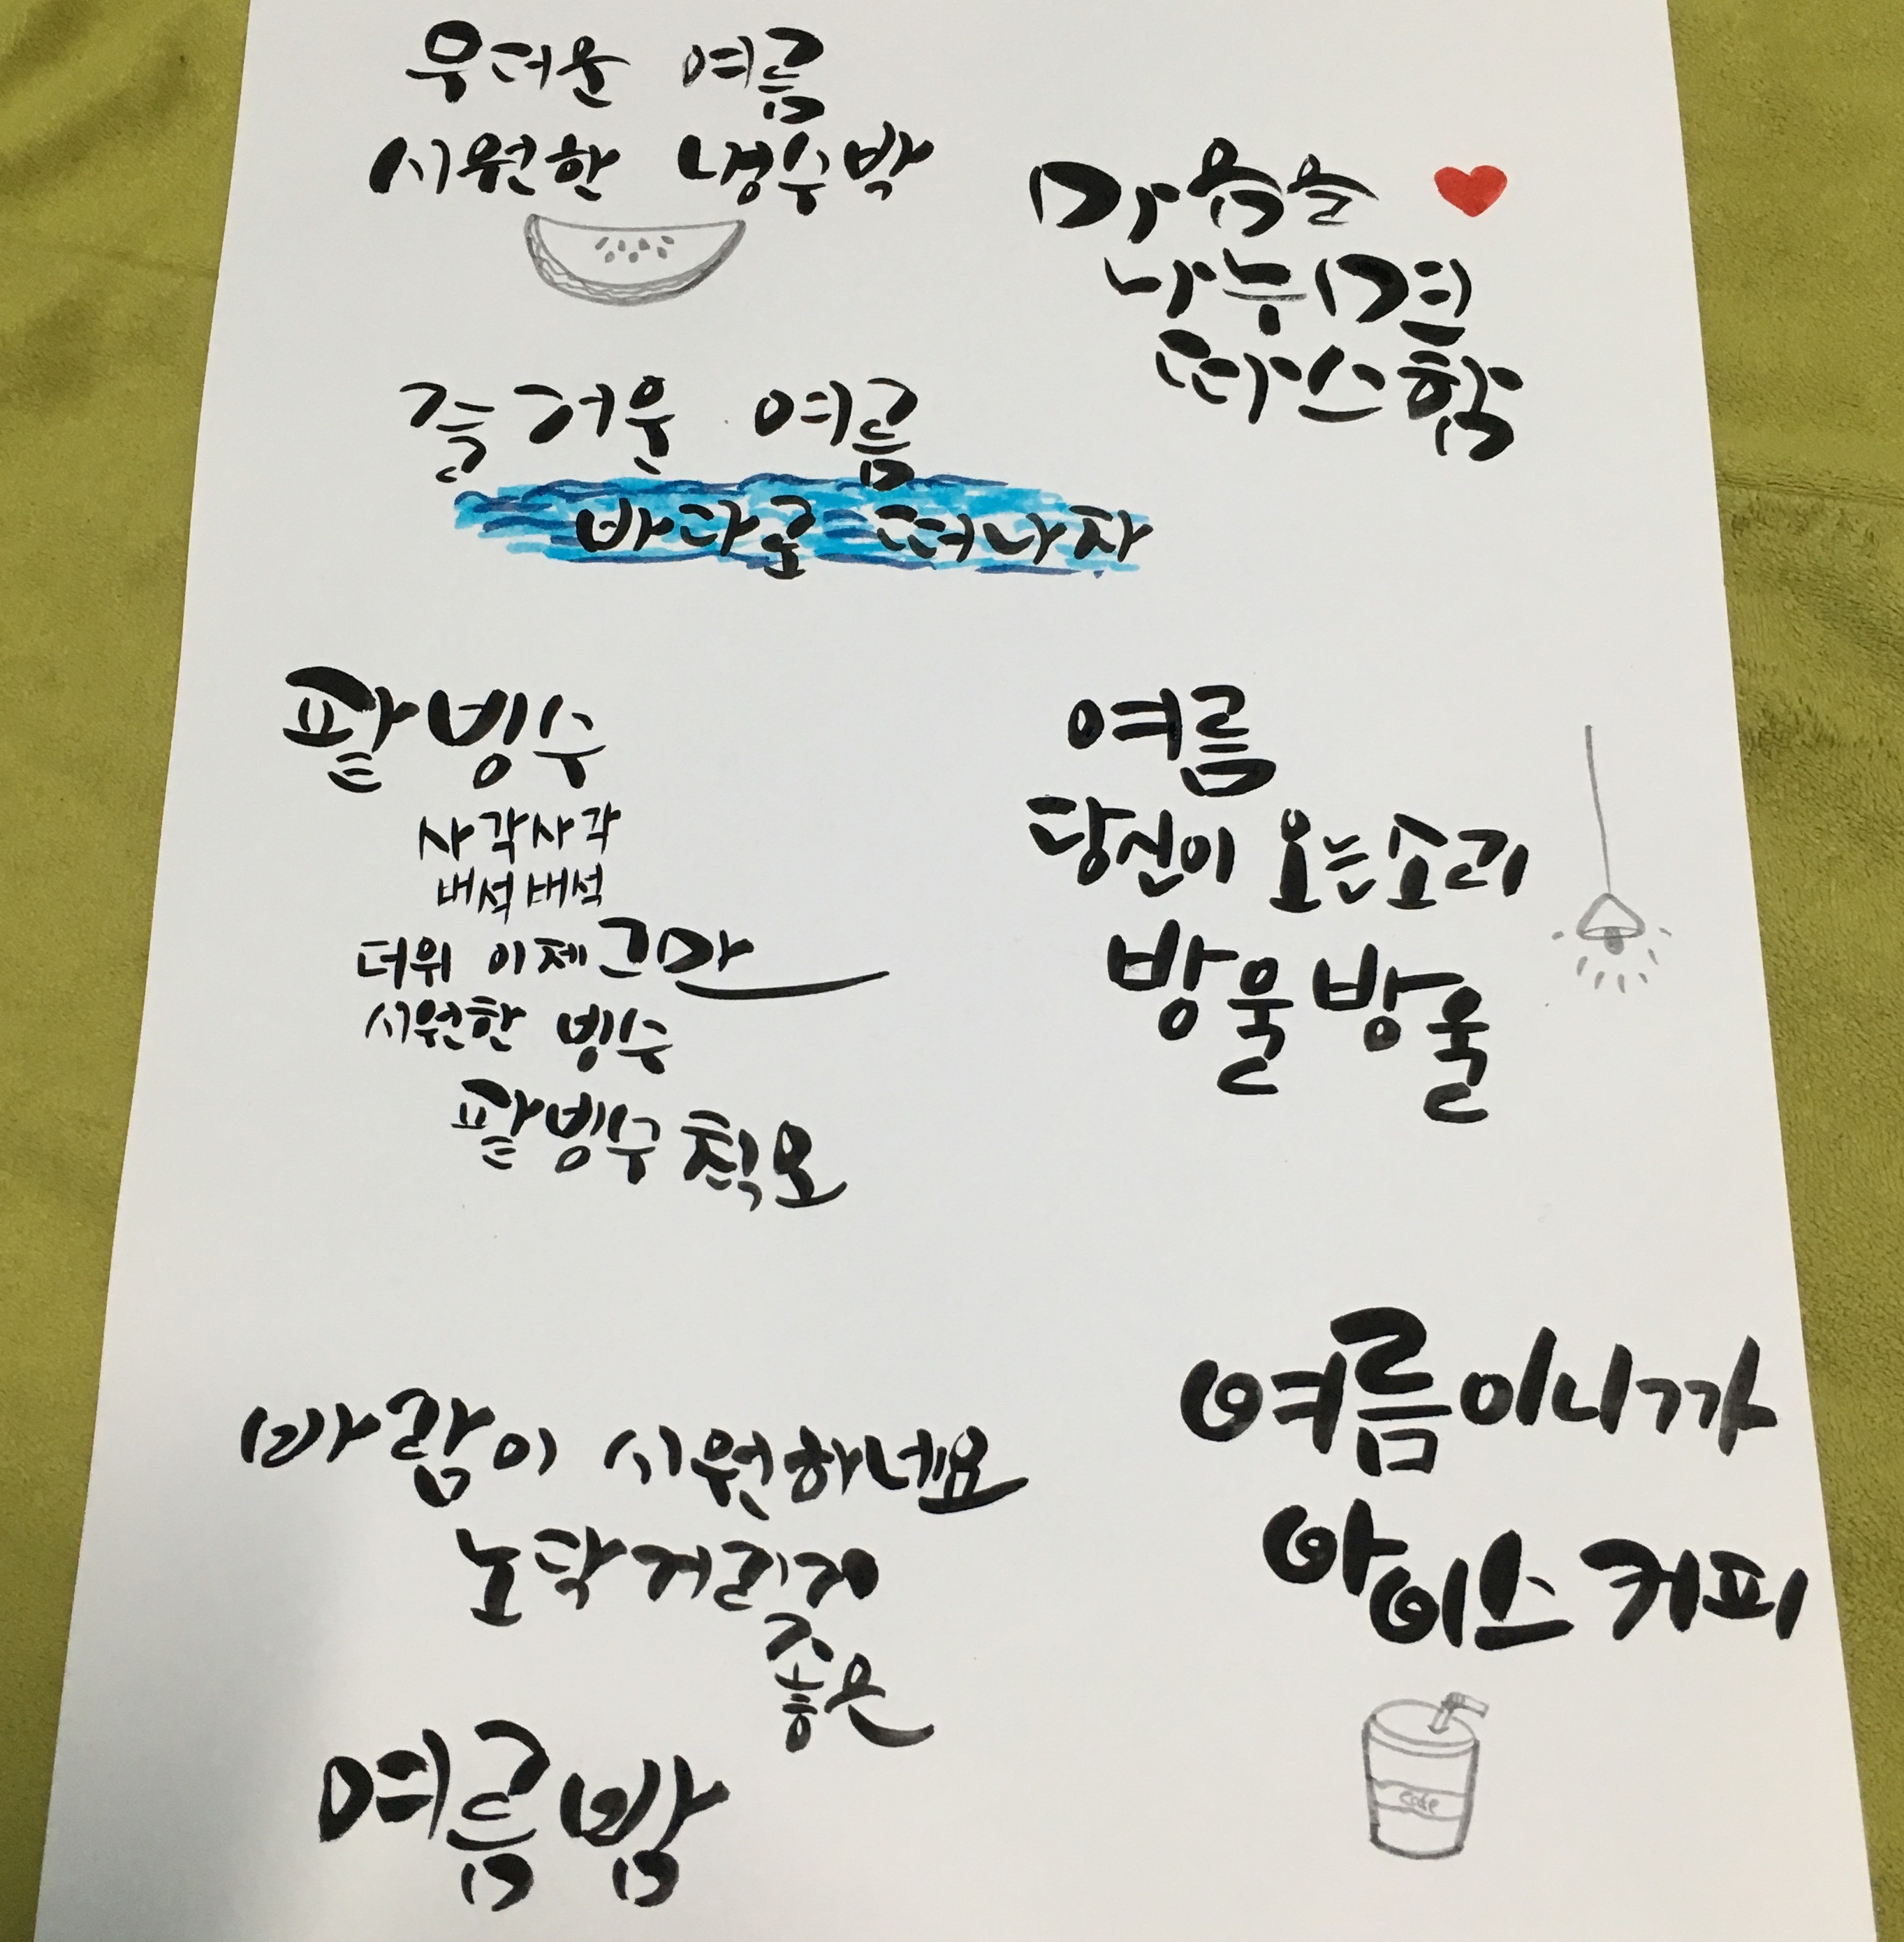 무더운 여름
시원한 냉수박
마음을
나누면
따스함
즐거운 여름
바다로 떠나자
팥빙수
사각사각
배석배석
더위 이제 그마
시원한 빙수
팥빙수 칙오
여름
당신이 오는소리
방울방울
여름이니까
아이스커피
cafe
바람이 시원하네요
노닥거리기
좋은
여름밤